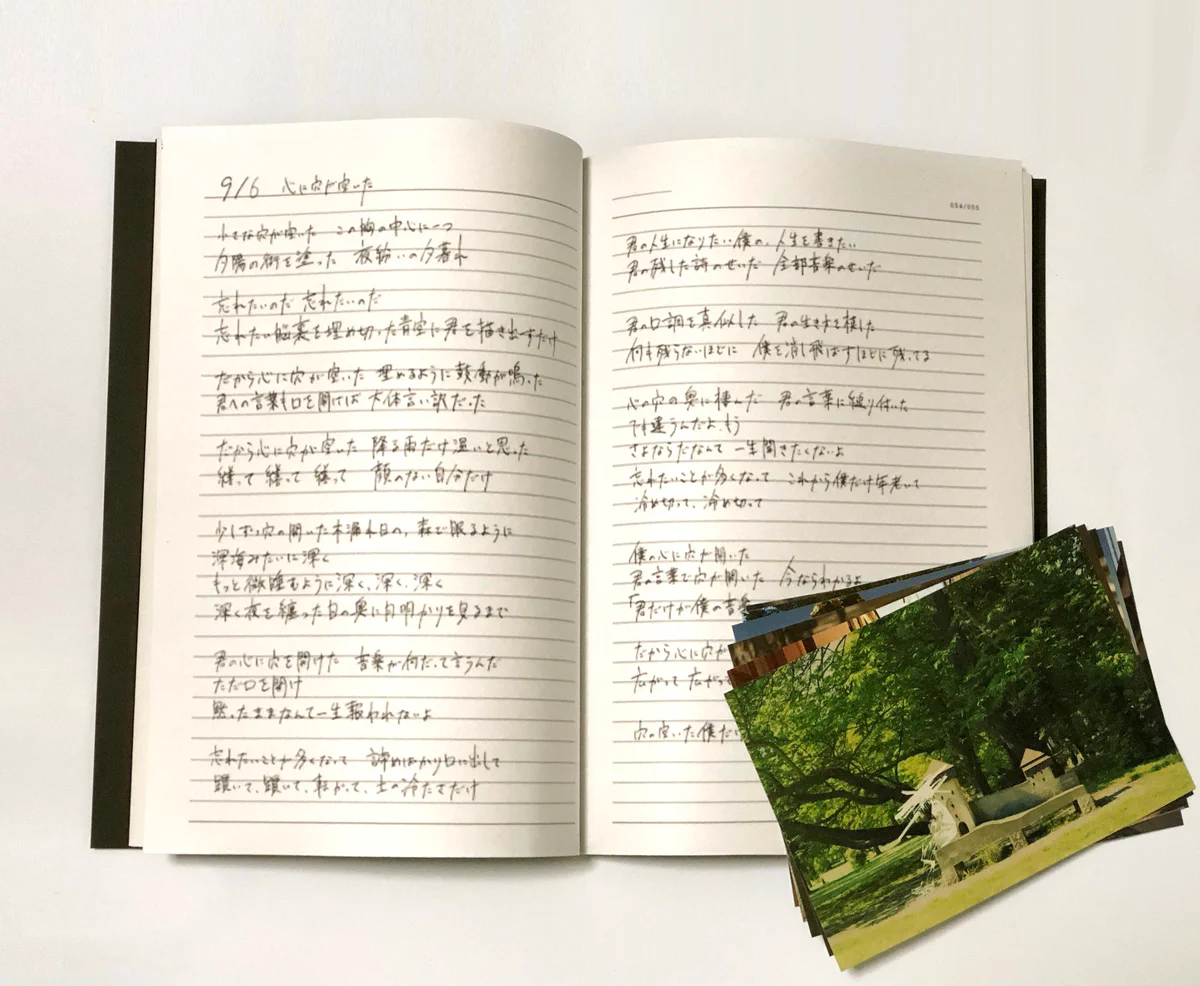 9/6 心に穴が空いた
小さな穴が空いた この胸の中心に一つ
夕陽の街を塗った 夜紛いの夕暮れ
忘れたいのだ 忘れたいのだ
忘れたい脳裏を埋め切った青空に君を描き出すだけ
だから心に穴が空いた 埋めるように鼓動が鳴った
君への言葉も口を開けば 大体言い訳だった
だから心に穴が空いた 降る雨だけ温いと思った
繕って 繕って 繕って 顔のない自分だけ
少しずつ穴の開いた木漏れ日の、森で眠るように
深海みたいに深く
もっと微睡むように深く、深く、深く
深く夜を纏った目の奥に月明かりを見るまで
君の心に穴を開けた 音楽が何だって言うんだ
ただ口を開け
黙ったままなんて一生報われないよ
忘れたいことが多くなって 諦めばかり口に出して
躓いて、躓いて、転がって、土の冷たさだけ
054/055
君の人生になりたい僕の、人生を書きたい
君の残した詩のせいだ 全部音楽のせいだ
君の口調を真似した 君の生き方を模した
何も残らないほどに 僕を消し飛ばすほどに 残ってる
心の穴の奥に棲んだ 君の言葉に縋り付いた
でも違うんだよ、もう
さよならだなんて 一生聞きたくないよ
忘れたいことが多くなって これから僕だけ年老いて
冷め切って、冷め切って
僕の心に穴が開いた
君の言葉で穴が開いた 今ならわかるよ
「君だけが僕の音楽
だから心に穴が
広がって 広がっ
穴の空いた僕だ